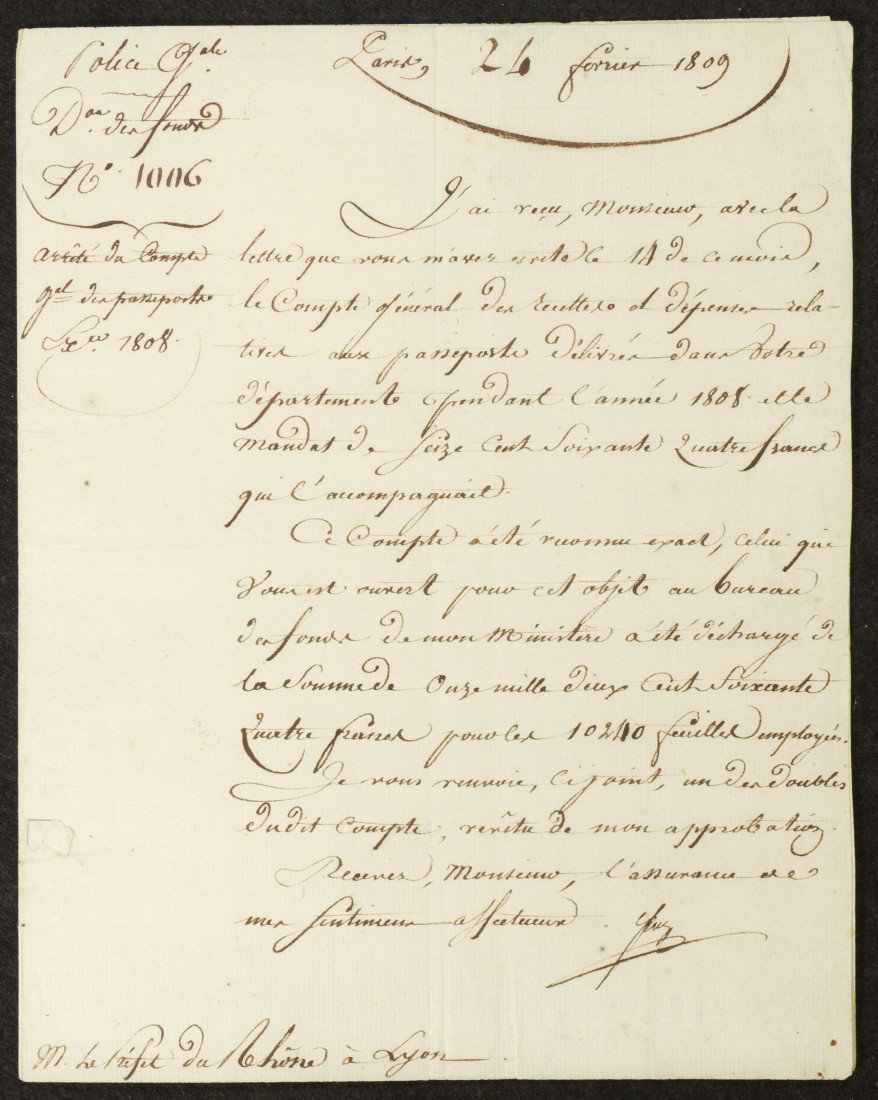 Police Gale
Don des fonds
No. 1006
arrêté du Compte
gal des passeports
Exce 1808.
Paris, 24 février 1809
J'ai reçu, Monsieur, avec la
lettre que vous m'avez écrite le 14 de ce mois,
le Compte général des recettes et dépenses rela-
tives aux passeports délivrés dans votre
département pendant l'année 1808 et le
mandat de Seize Cent Soixante Quatre francs
qui l'accompagnait.
Ce Compte a été reconnu exact, celui qui
vous est ouvert pour cet objet au bureau
des fonds de mon Ministère a été déchargé de
la Somme de Onze mille deux Cent Soixante
Quatre francs pour les 10240 feuilles employées.
Je vous renvoie, ci joint, un des doubles
dudit Compte, revêtu de mon approbation.
Recevez, Monsieur, l'assurance de
mes Sentimens affectueux.
M. le Préfet du Rhône à Lyon.